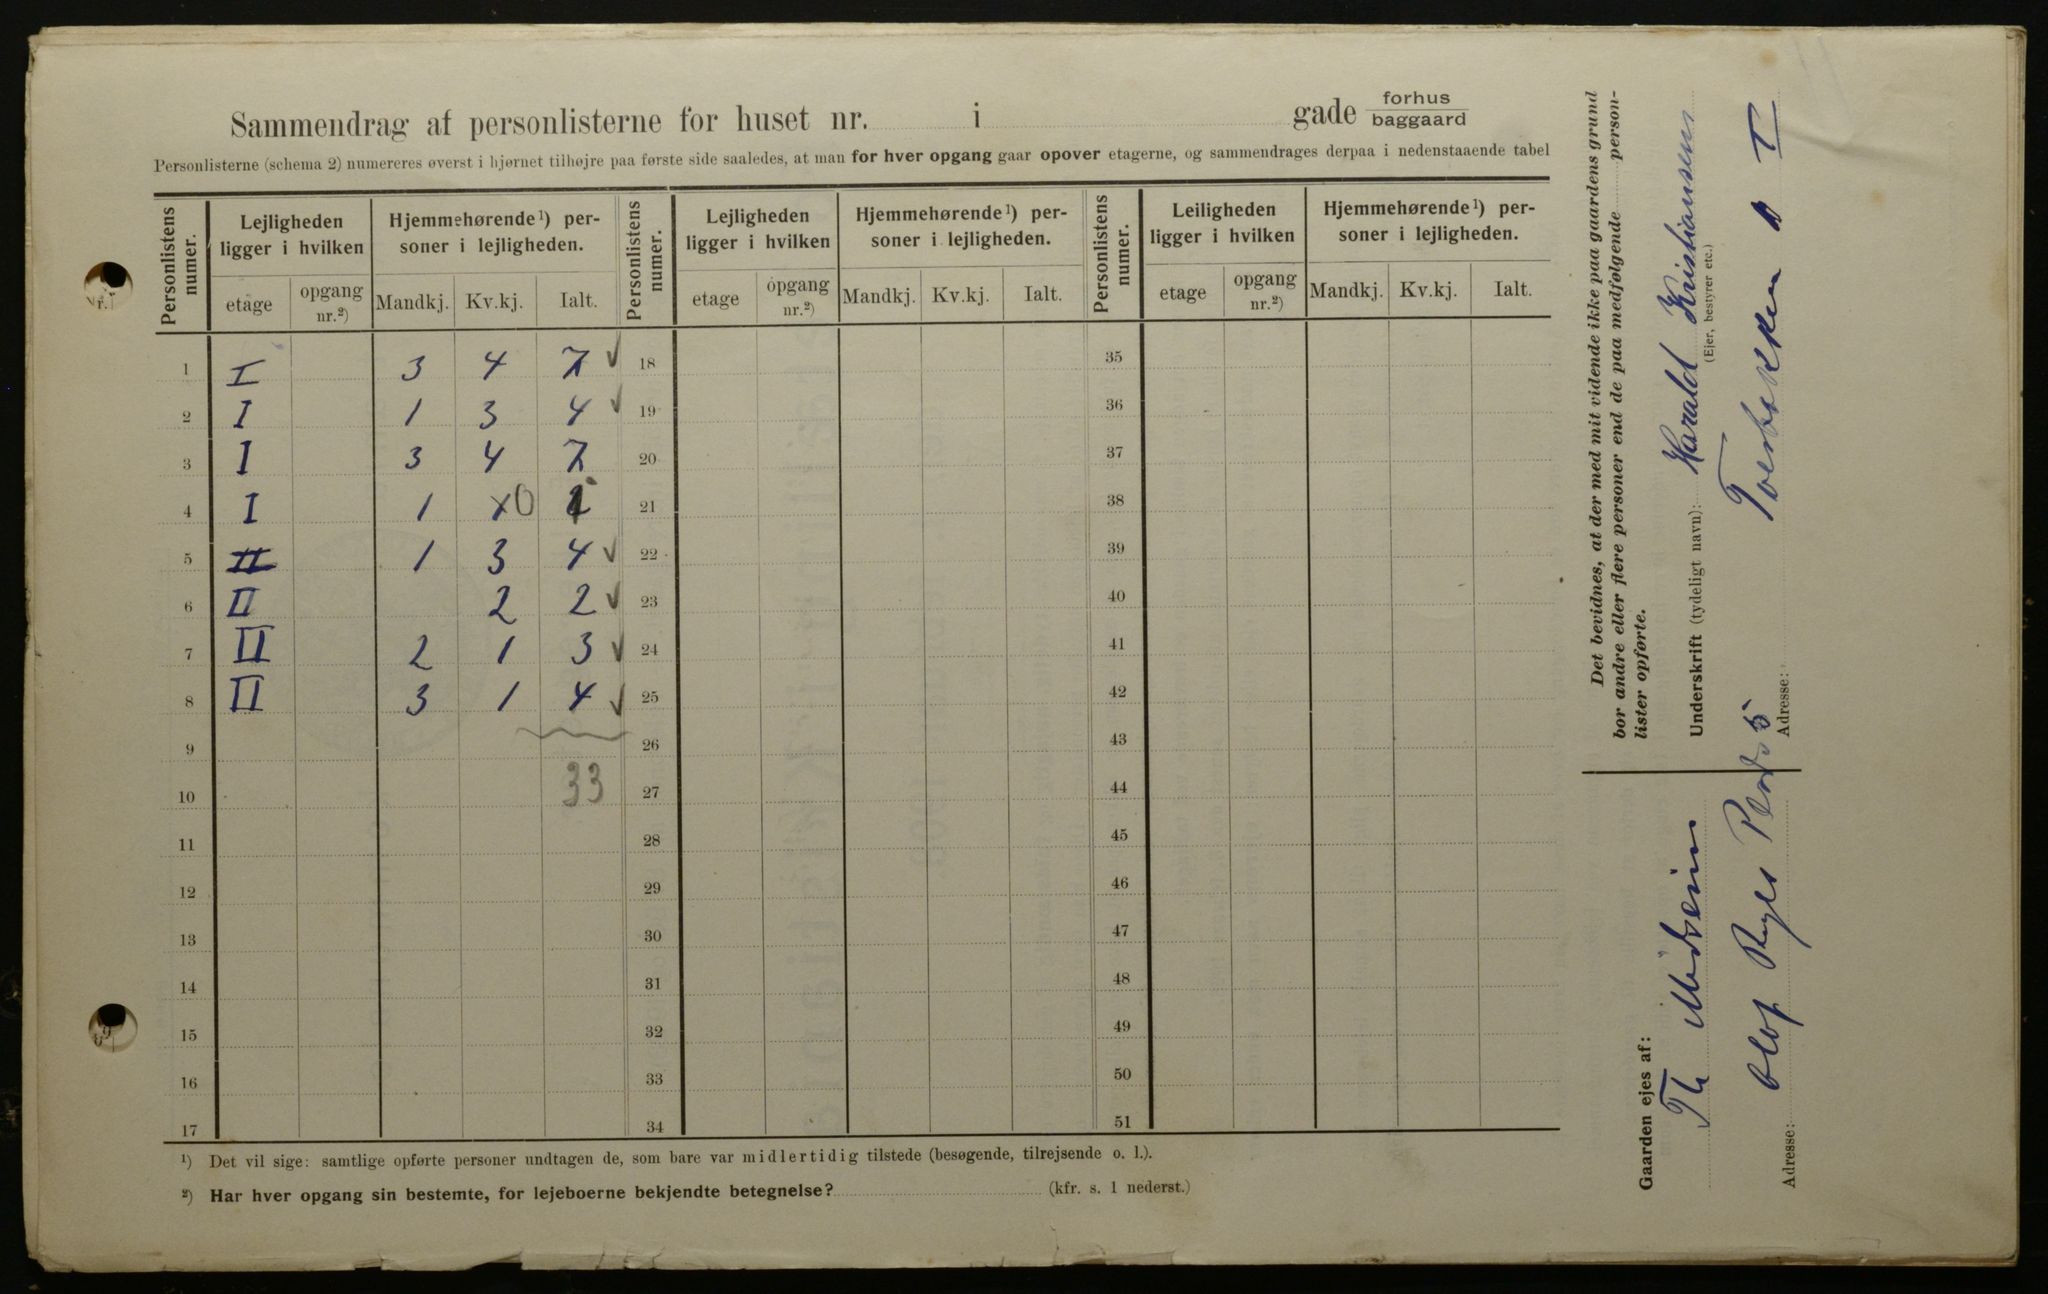 Sammendrag af personlisterne for huset nr. i gade forhus baggaard
Personlisterne (schema 2) numereres øverst i hjørnet tilhøjre paa første side saaledes, at man for hver opgang gaar opover etagerne, og sammendrages derpaa i nedenstaaende tabel
Personlistens numer. Lejligheden ligger i hvilken Hjemmehørende¹) personer i lejligheden. Personlistens numer. Lejligheden ligger i hvilken Hjemmehørende¹) personer i lejligheden. Personlistens numer. Leiligheden ligger i hvilken Hjemmehørende¹) personer i lejligheden.
etage opgang nr.²) Mandkj. Kv.kj. Ialt. etage opgang nr.²) Mandkj. Kv.kj. Ialt. etage opgang nr.²) Mandkj. Kv.kj. Ialt.
1 I 3 4 7 18 35
2 I 1 3 4 19 36
3 I 3 4 7 20 37
4 I 1 0 21 38
5 II 1 3 4 22 39
6 II 2 2 23 40
7 II 2 1 3 24 41
8 II 3 1 4 25 42
9 26 43
10 33 27 44
11 28 45
12 29 46
13 30 47
14 31 48
15 32 49
16 33 50
17 34 51
¹) Det vil sige: samtlige opførte personer undtagen de, som bare var midlertidig tilstede (besøgende, tilrejsende o. l.).
²) Har hver opgang sin bestemte, for lejeboerne bekjendte betegnelse? (kfr. s. 1 nederst.)
Det bevidnes, at der med mit vidende ikke paa gaardens grund
bor andre eller flere personer end de paa medfølgende person-
lister opførte.
Underskrift (tydeligt navn): Harald Kristiansen
(Ejer, bestyrer etc.)
Adresse:
Gaarden ejes af:
Th
Adresse: Olof Ryes Plads 5